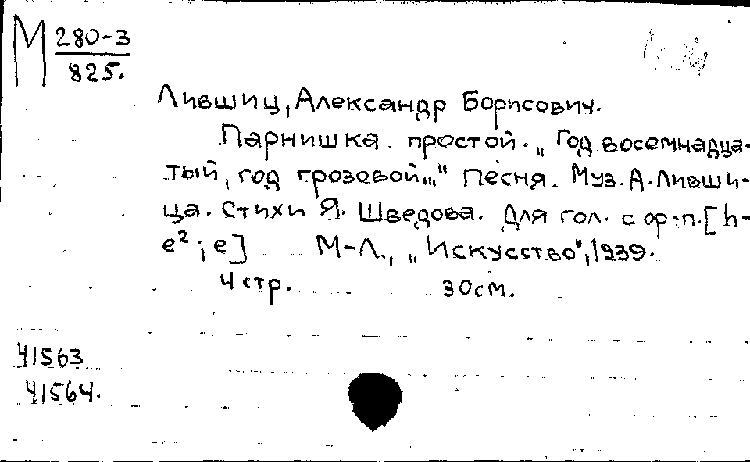 М 280-3
825.
Лившиц, Александр Борисович.
Парнишка простой. „Год восемнадца-
тый, год грозовой..." Песня. Муз. А. Ливши-
ца. Стихи Я. Шведова. Для гол. с ф-п. [h-
e²; e] М-Л., „Искусство", 1939.
4 стр. 30 см.
41563
41564.